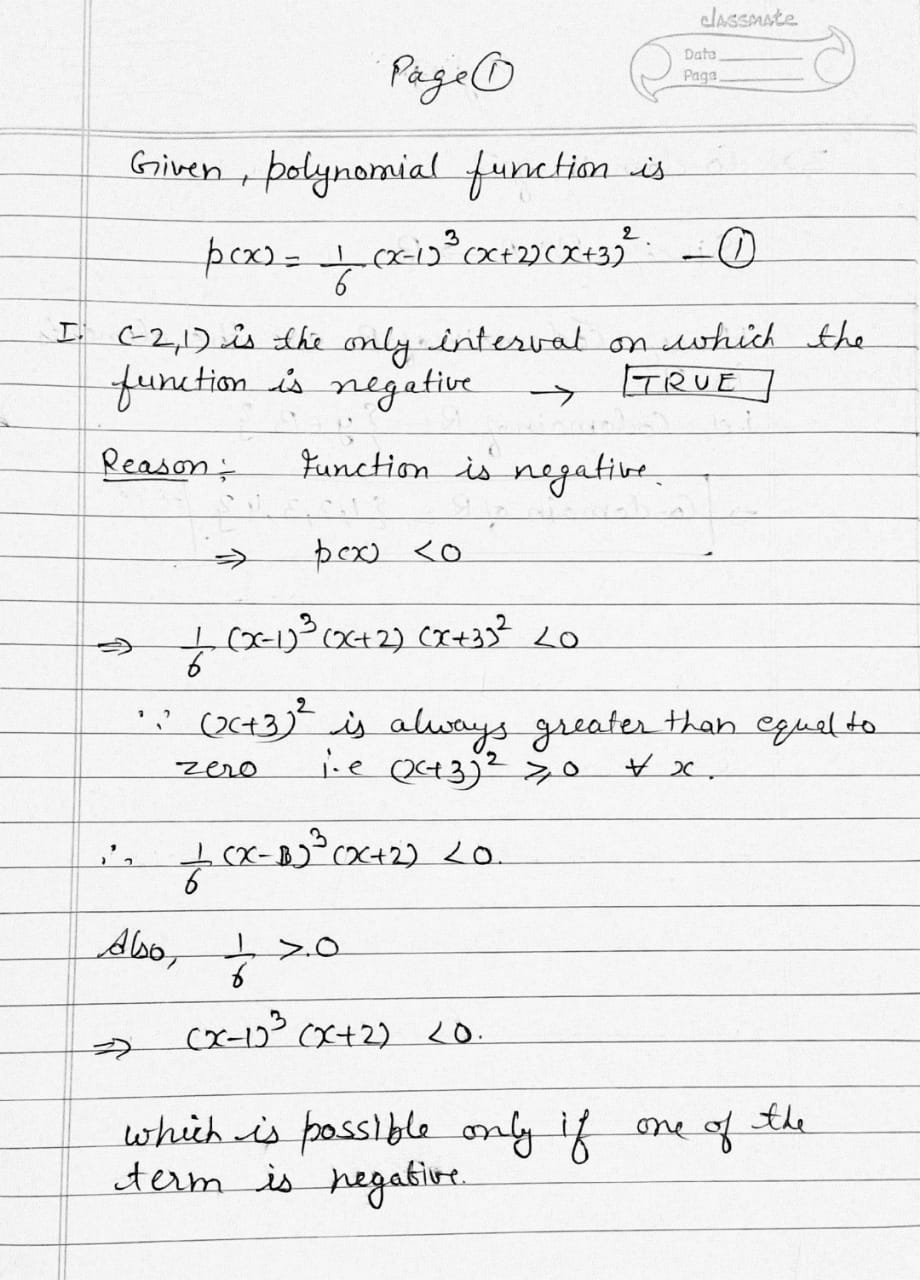 classmate
Date
Page
Page ①
Given, polynomial function is
p(x) = 1/6 (x-1)³ (x+2) (x+3)². — ①
I. (-2,1) is the only interval on which the
function is negative → TRUE
Reason :- Function is negative.
⇒ p(x) <0
⇒ 1/6 (x-1)³ (x+2) (x+3)² <0
∵ (x+3)² is always greater than equal to
zero i.e (x+3)² ≥ 0 ∀ x.
∴ 1/6 (x-1)³ (x+2) <0.
Also, 1/6 >0
⇒ (x-1)³ (x+2) <0.
which is possible only if one of the
term is negative.